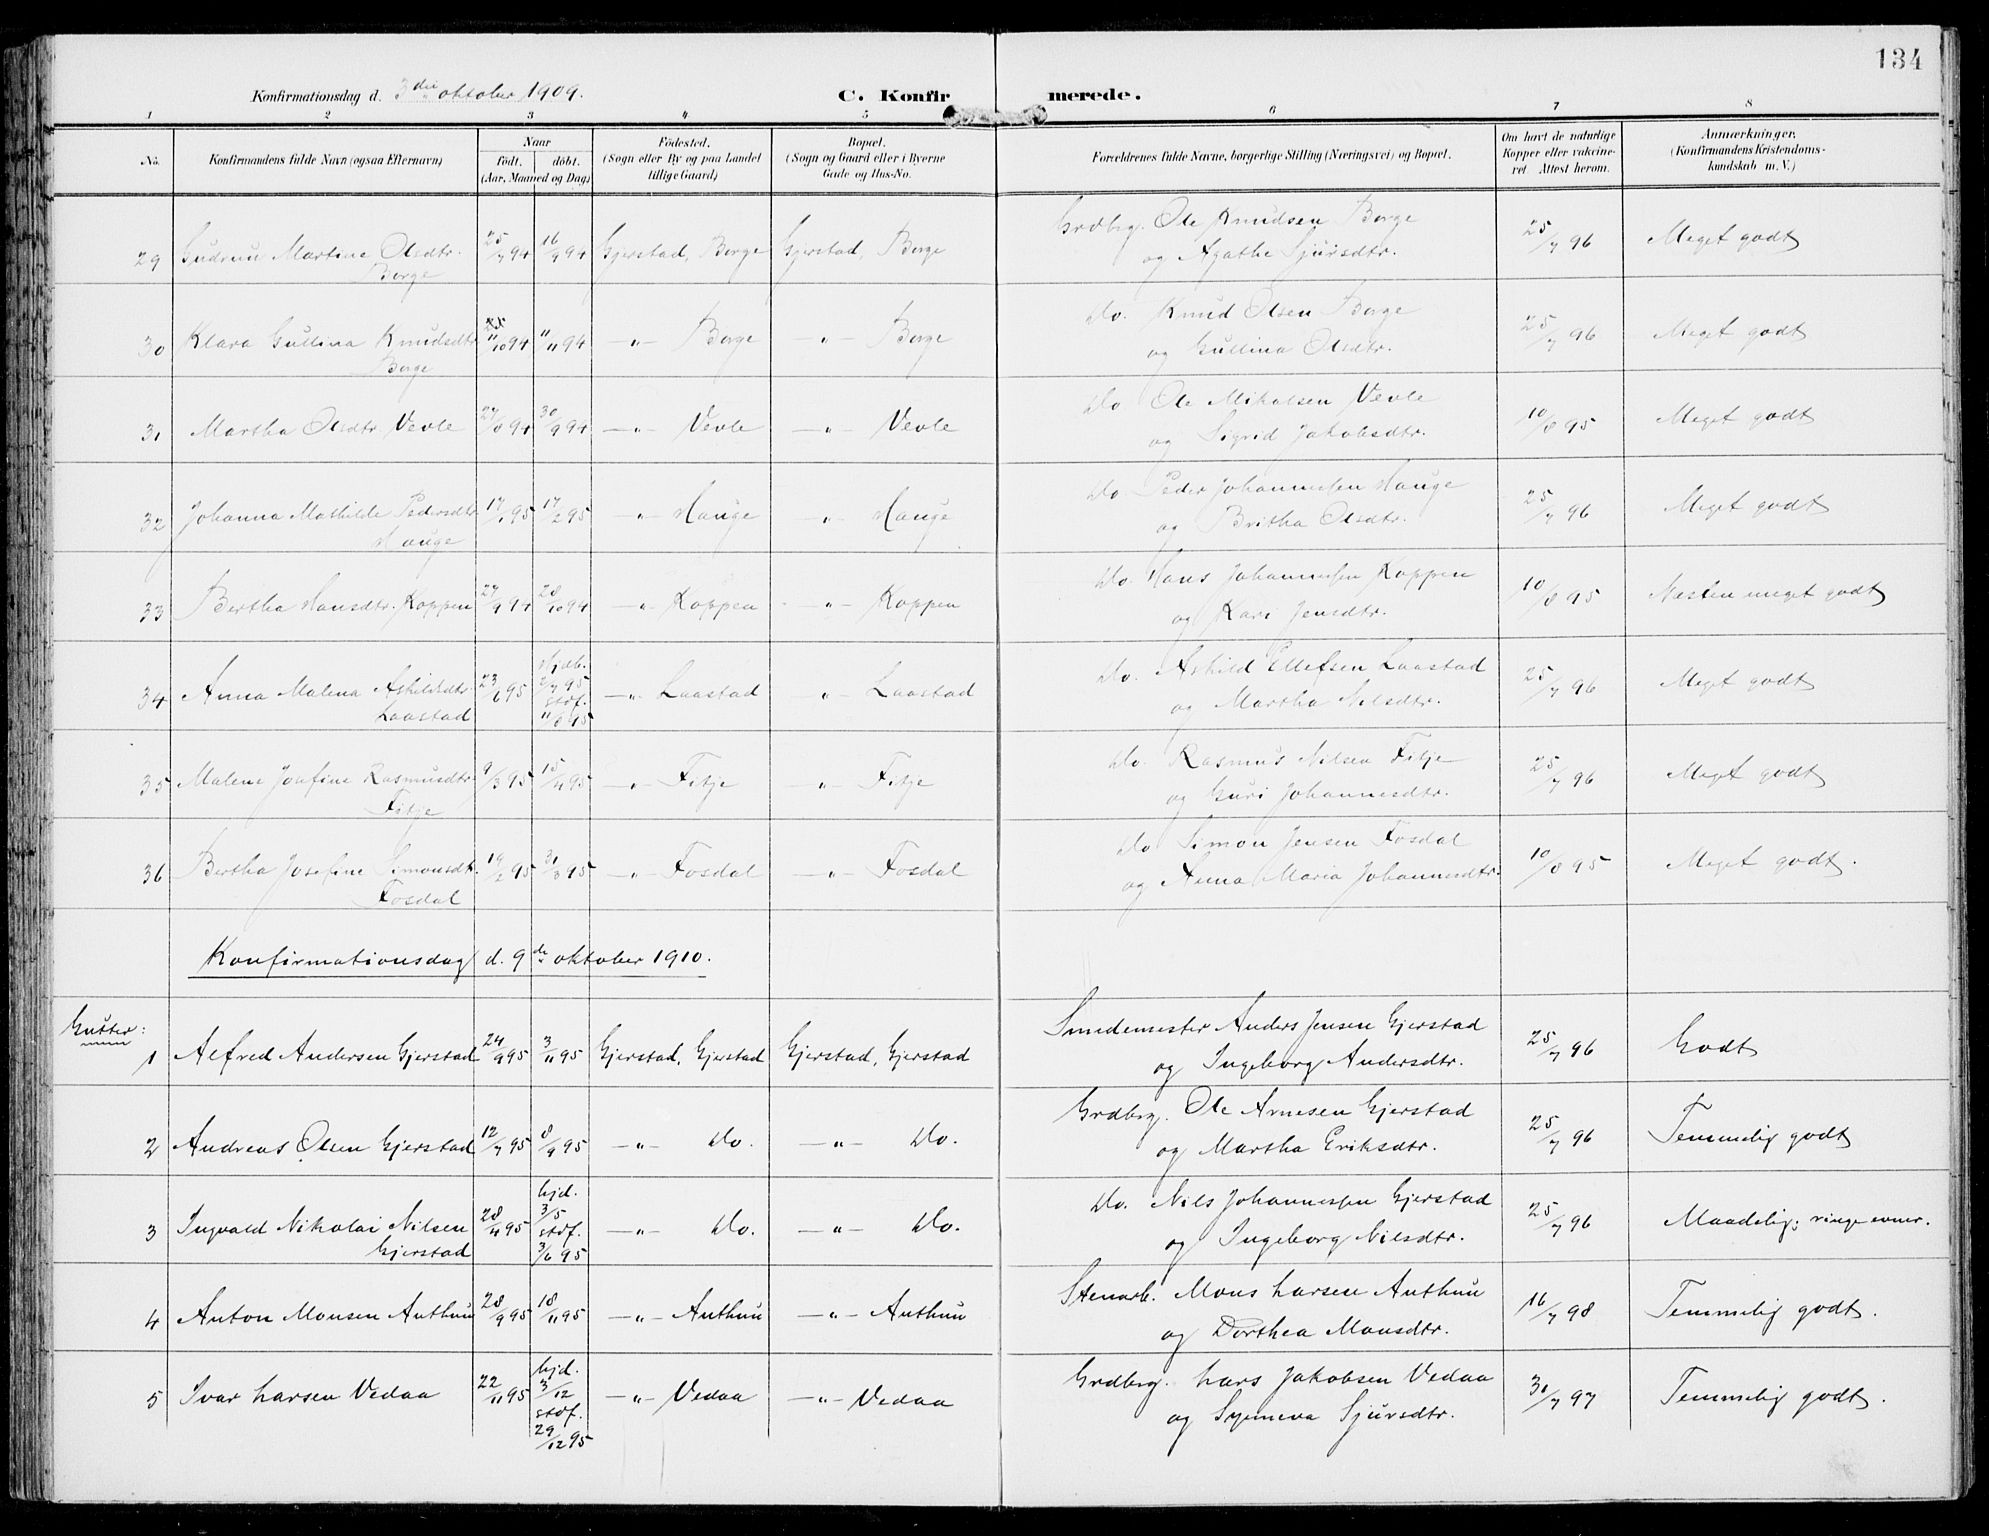 134
Konfirmationsdag d. 3die oktober 1909. C. Konfirmerede.
1 2 3 4 5 6 7 8
No. Konfirmandens fulde Navn (ogsaa Efternavn) Naar født. døbt. (Aar, Maaned og Dag) Fødested. (Sogn eller By og paa Landet tillige Gaard) Bopæl. (Sogn og Gaard eller i Byerne Gade og Hus-No. Forældrenes fulde Navne, borgerlige Stilling (Næringsvei) og Bopæl. Om havt de naturlige Kopper eller vakcineret Attest herom. Anmærkninger. (Konfirmandens Kristendomskundskab m. V.)
29 Gudrun Martine Olsdtr. Borge 25/7 94 16/9 94 Gjerstad, Borge Gjerstad, Borge Grdbrg. Ole Knudsen Borge og Agathe Sjursdtr. 25/7 96 Meget godt
30 Klara Gullina Knudsdtr Borge 11/10 94 11/11 94 —"— Borge —"— Borge Do. Knud Olsen Borge og Gullina Olsdtr. 25/7 96 Meget godt
31 Martha Olsdtr. Vevle 27/8 94 30/9 94 —"— Vevle —"— Vevle Do. Ole Mikalsen Vevle og Sigrid Jakobsdtr. 10/8 95 Meget godt
32 Johanna Mathilde Pedersdtr Hauge 17/1 95 17/2 95 —"— Hauge —"— Hauge Do. Peder Johannessen Hauge og Britha Olsdtr. 25/7 96 Meget godt
33 Bertha Hansdtr. Koppen 27/9 94 28/10 94 —"— Koppen —"— Koppen Do. Hans Johannessen Koppen og Kari Jensdtr. 10/8 95 Næsten meget godt
34 Anna Malena Askildsdtr Laastad 23/6 95 Hjdb. 2/7 95 stdf. 11/8 95 —"— Laastad —"— Laastad Do. Askild Ellefsen Laastad og Martha Nilsdtr. 25/7 96 Meget godt
35 Malene Josefine Rasmusdtr. Fitje 9/3 95 15/4 95 —"— Fitje —"— Fitje Do. Rasmus Nilsen Fitje og Guri Johannesdtr. 25/7 96 Meget godt
36 Bertha Josefine Simonsdtr. Fosdal 19/2 95 31/3 95 —"— Fosdal —"— Fosdal Do Simon Jensen Fosdal og Anna Maria Johannesdtr. 10/8 95 Meget godt.
Konfirmationsdag d. 9de oktober 1910.
Gutter:
1 Alfred Andersen Gjerstad 24/9 95 3/11 95 Gjerstad, Gjerstad Gjerstad, Gjerstad Smedemester Anders Jensen Gjerstad og Ingeborg Andersdtr. 25/7 96 Godt
2 Andreas Olsen Gjerstad 12/7 95 8/9 95 —"— Do. —"— Do. Grdbrg. Ole Arnesen Gjerstad og Martha Eriksdtr. 25/7 96 Temmelig godt
3 Ingvald Nikolai Nilsen Gjerstad 28/4 95 hjd. 3/5 stdf. 3/6 95 —"— Do. —"— Do. Do. Nils Johannessen Gjerstad og Ingeborg Nilsdtr. 25/7 96 Maadelig; ringe evner.
4 Anton Monsen Authun 28/9 95 18/11 95 —"— Authun —"— Authun Stenarb. Mons Larsen Authun og Dorthea Monsdtr. 16/7 98 Temmelig godt.
5 Ivar Larsen Vedaa 22/11 95 hjd. 3/12 stdf. 29/12 95 —"— Vedaa —"— Vedaa Grdbrg. Lars Jakobsen Vedaa og Synneva Sjursdtr. 31/7 97 Temmelig godt.